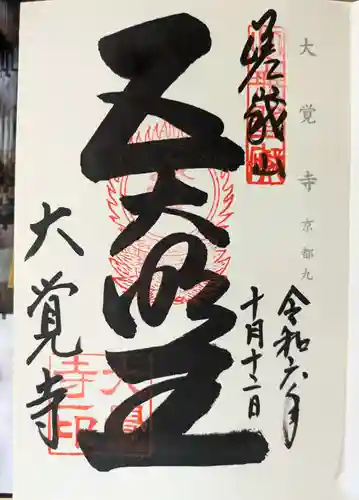 大覚寺 京都九
嵯峨山
令和六年
十月十二日
五大明王
大覚寺
大覚寺印